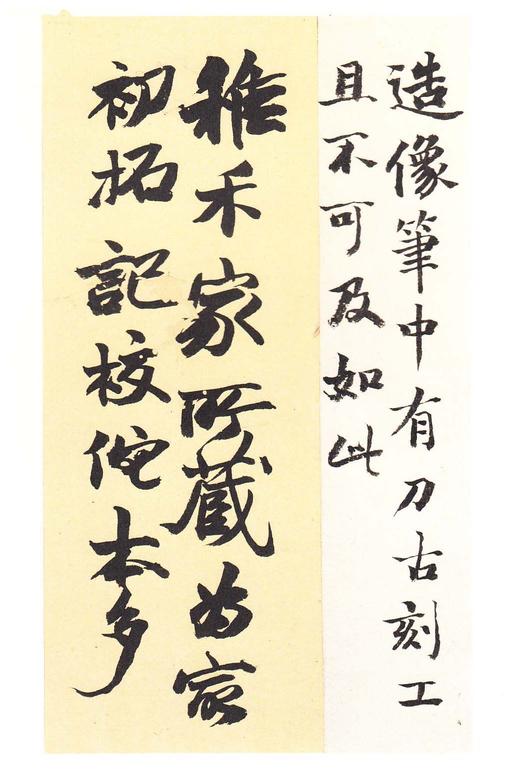 造像筆中有刀古刻工
且不可及如此
稚禾家所藏为㝡
初拓記校佗本多